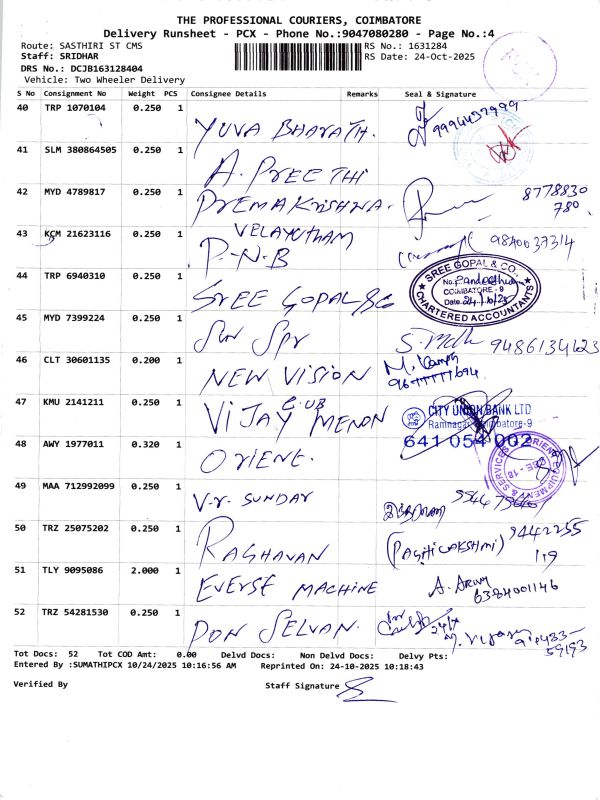 THE PROFESSIONAL COURIERS, COIMBATORE
Delivery Runsheet - PCX - Phone No.:9047080280 - Page No.:4
Route: SASTHIRI ST CMS RS No.: 1631284
Staff: SRIDHAR RS Date: 24-Oct-2025
DRS No.: DCJB163128404
Vehicle: Two Wheeler Delivery
S No Consignment No Weight PCS Consignee Details Remarks Seal & Signature
40 TRP 1070104 0.250 1 YUVA BHARATH. 9994437999
41 SLM 380864505 0.250 1 A. PREETHI
42 MYD 4789817 0.250 1 PREMAKRISHNA. 8778830
780
43 KCM 21623116 0.250 1 VELAYUTHAM 9840037314
P-N-B
44 TRP 6940310 0.250 1 SREE GOPAL &Co SREE GOPAL & CO.,
COIMBATORE - 9
Date 24/10/25
CHARTERED ACCOUNTANTS
45 MYD 7399224 0.250 1 9486134623
46 CLT 30601135 0.200 1 NEW VISION
47 KMU 2141211 0.250 1 CUB CITY UNION BANK LTD
VIJAY MENON Ramnagar Coimbatore-9
641 054 002
48 AWY 1977011 0.320 1 ORIENT.
49 MAA 712992099 0.250 1 V.r. SUNDAR
50 TRZ 25075202 0.250 1 RAGHAVAN 9442255
119
51 TLY 9095086 2.000 1 EVERSE MACHINE A. Arun
6384001146
52 TRZ 54281530 0.250 1 PON SELVAN.
59193
Tot Docs: 52 Tot COD Amt: 0.00 Delvd Docs: Non Delvd Docs: Delvy Pts:
Entered By :SUMATHIPCX 10/24/2025 10:16:56 AM Reprinted On: 24-10-2025 10:18:43
Verified By Staff Signature